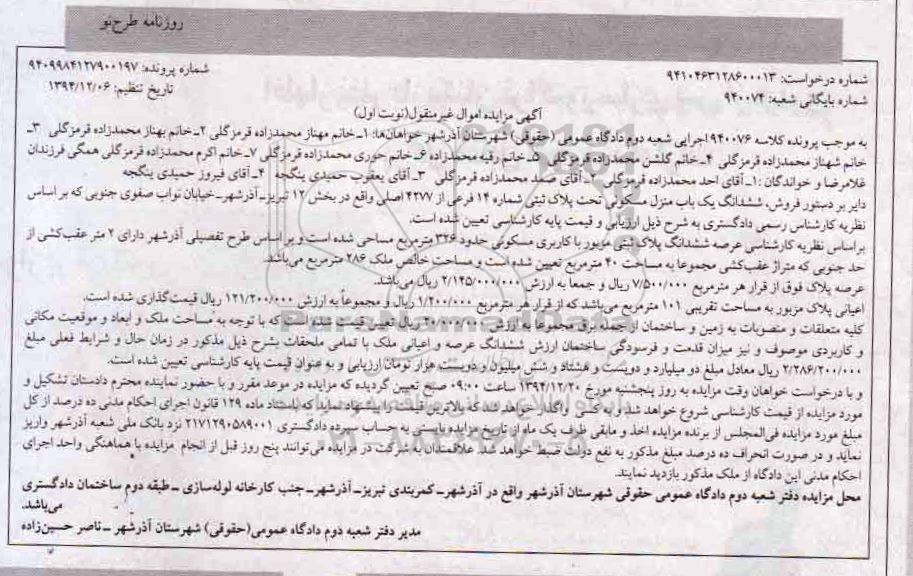 روزنامه طرح‌نو
شماره درخواست: ۹۴۱۰۴۶۳۱۲۸۶۰۰۰۱۳
شماره پرونده: ۹۴۰۹۹۸۴۱۲۷۹۰۰۱۹۷
شماره بایگانی شعبه: ۹۴۰۰۷۴
تاریخ تنظیم: ۱۳۹۴/۱۲/۰۶
آگهی مزایده اموال غیرمنقول(نوبت اول)
به موجب پرونده کلاسه ۹۴۰۰۷۶ اجرایی شعبه دوم دادگاه عمومی (حقوقی) شهرستان آذرشهر خواهان‌ها: ۱ـ خانم مهناز محمدزاده قرمزگلی ۲ـ خانم بهناز محمدزاده قرمزگلی ۳ـ
خانم شهناز محمدزاده قرمزگلی ۴ـ خانم گلشن محمدزاده قرمزگلی ۵ـ خانم رقیه محمدزاده ۶ـ خانم حوری محمدزاده قرمزگلی ۷ـ خانم اکرم محمدزاده قرمزگلی همگی فرزندان
غلامرضا و خواندگان :۱ـ آقای احد محمدزاده قرمزگلی ۲ـ آقای صمد محمدزاده قرمزگلی ۳ـ آقای یعقوب حمیدی پنگجه ۴ـ آقای فیروز حمیدی پنگجه
دایر بر دستور فروش، ششدانگ یک باب منزل مسکونی تحت پلاک ثبتی شماره ۱۴ فرعی از ۴۲۷۷ اصلی واقع در بخش ۱۲ تبریز_آذرشهر_خیابان نواب صفوی جنوبی که بر اساس
نظریه کارشناس رسمی دادگستری به شرح ذیل ارزیابی و قیمت پایه کارشناسی تعیین شده است.
بر اساس نظریه کارشناسی عرصه ششدانگ پلاک ثبتی مزبور با کاربری مسکونی حدود ۳۲۶ مترمربع مساحی شده است و بر اساس طرح تفصیلی آذرشهر دارای ۲ متر عقب‌کشی از
حد جنوبی که متراژ عقب‌کشی مجموعا به مساحت ۴۰ مترمربع تعیین شده است و مساحت خالص ملک ۲۸۶ مترمربع می‌باشد.
عرصه پلاک فوق از قرار هر مترمربع ۷/۵۰۰/۰۰۰ ریال و جمعا به ارزش ۲/۱۴۵/۰۰۰/۰۰۰ ریال می‌باشد.
اعیانی پلاک مزبور به مساحت تقریبی ۱۰۱ مترمربع می‌باشد که از قرار هر مترمربع ۱/۲۰۰/۰۰۰ ریال و مجموعاً به ارزش ۱۲۱/۲۰۰/۰۰۰ ریال قیمت‌گذاری شده است.
کلیه متعلقات و منصوبات به زمین و ساختمان از جمله برق مجموعا به ارزش ۲۰/۰۰۰/۰۰۰ ریال تعیین قیمت شده است که با توجه به مساحت ملک و ابعاد و موقعیت مکانی
و کاربردی موصوف و نیز میزان قدمت و فرسودگی ساختمان ارزش ششدانگ عرصه و اعیانی ملک با تمامی ملحقات بشرح ذیل مذکور در زمان حال و شرایط فعلی مبلغ
۲/۲۸۶/۲۰۰/۰۰۰ ریال معادل مبلغ دو میلیارد و دویست و هشتاد و شش میلیون و دویست هزار تومان ارزیابی و به عنوان قیمت پایه کارشناسی تعیین شده است.
و با درخواست خواهان وقت مزایده به روز پنجشنبه مورخ ۱۳۹۴/۱۲/۲۰ ساعت ۰۹:۰۰ صبح تعیین گردیده که مزایده در موعد مقرر و با حضور نماینده محترم دادستان تشکیل و
مورد مزایده از قیمت کارشناسی شروع خواهد شد و به کسی واگذار خواهد شد که بالاترین قیمت را پیشنهاد نماید که باستناد ماده ۱۲۹ قانون اجرای احکام مدنی ده درصد از کل
مبلغ مورد مزایده فی‌المجلس از برنده مزایده اخذ و مابقی ظرف یک ماه از تاریخ مزایده بایستی به حساب سپرده دادگستری ۲۱۷۱۲۹۰۵۸۹۰۰۱ نزد بانک ملی شعبه آذرشهر واریز
نماید و در صورت انحراف ده درصد مبلغ مذکور به نفع دولت ضبط خواهد شد. علاقمندان به شرکت در مزایده می‌توانند پنج روز قبل از انجام مزایده با هماهنگی واحد اجرای
احکام مدنی این دادگاه از ملک مذکور بازدید نمایند.
محل مزایده دفتر شعبه دوم دادگاه عمومی حقوقی شهرستان آذرشهر واقع در آذرشهر_کمربندی تبریز_آذرشهر_جنب کارخانه لوله‌سازی _ طبقه دوم ساختمان دادگستری
می‌باشد.
مدیر دفتر شعبه دوم دادگاه عمومی(حقوقی) شهرستان آذرشهر _ ناصر حسین‌زاده
ParsNamadData